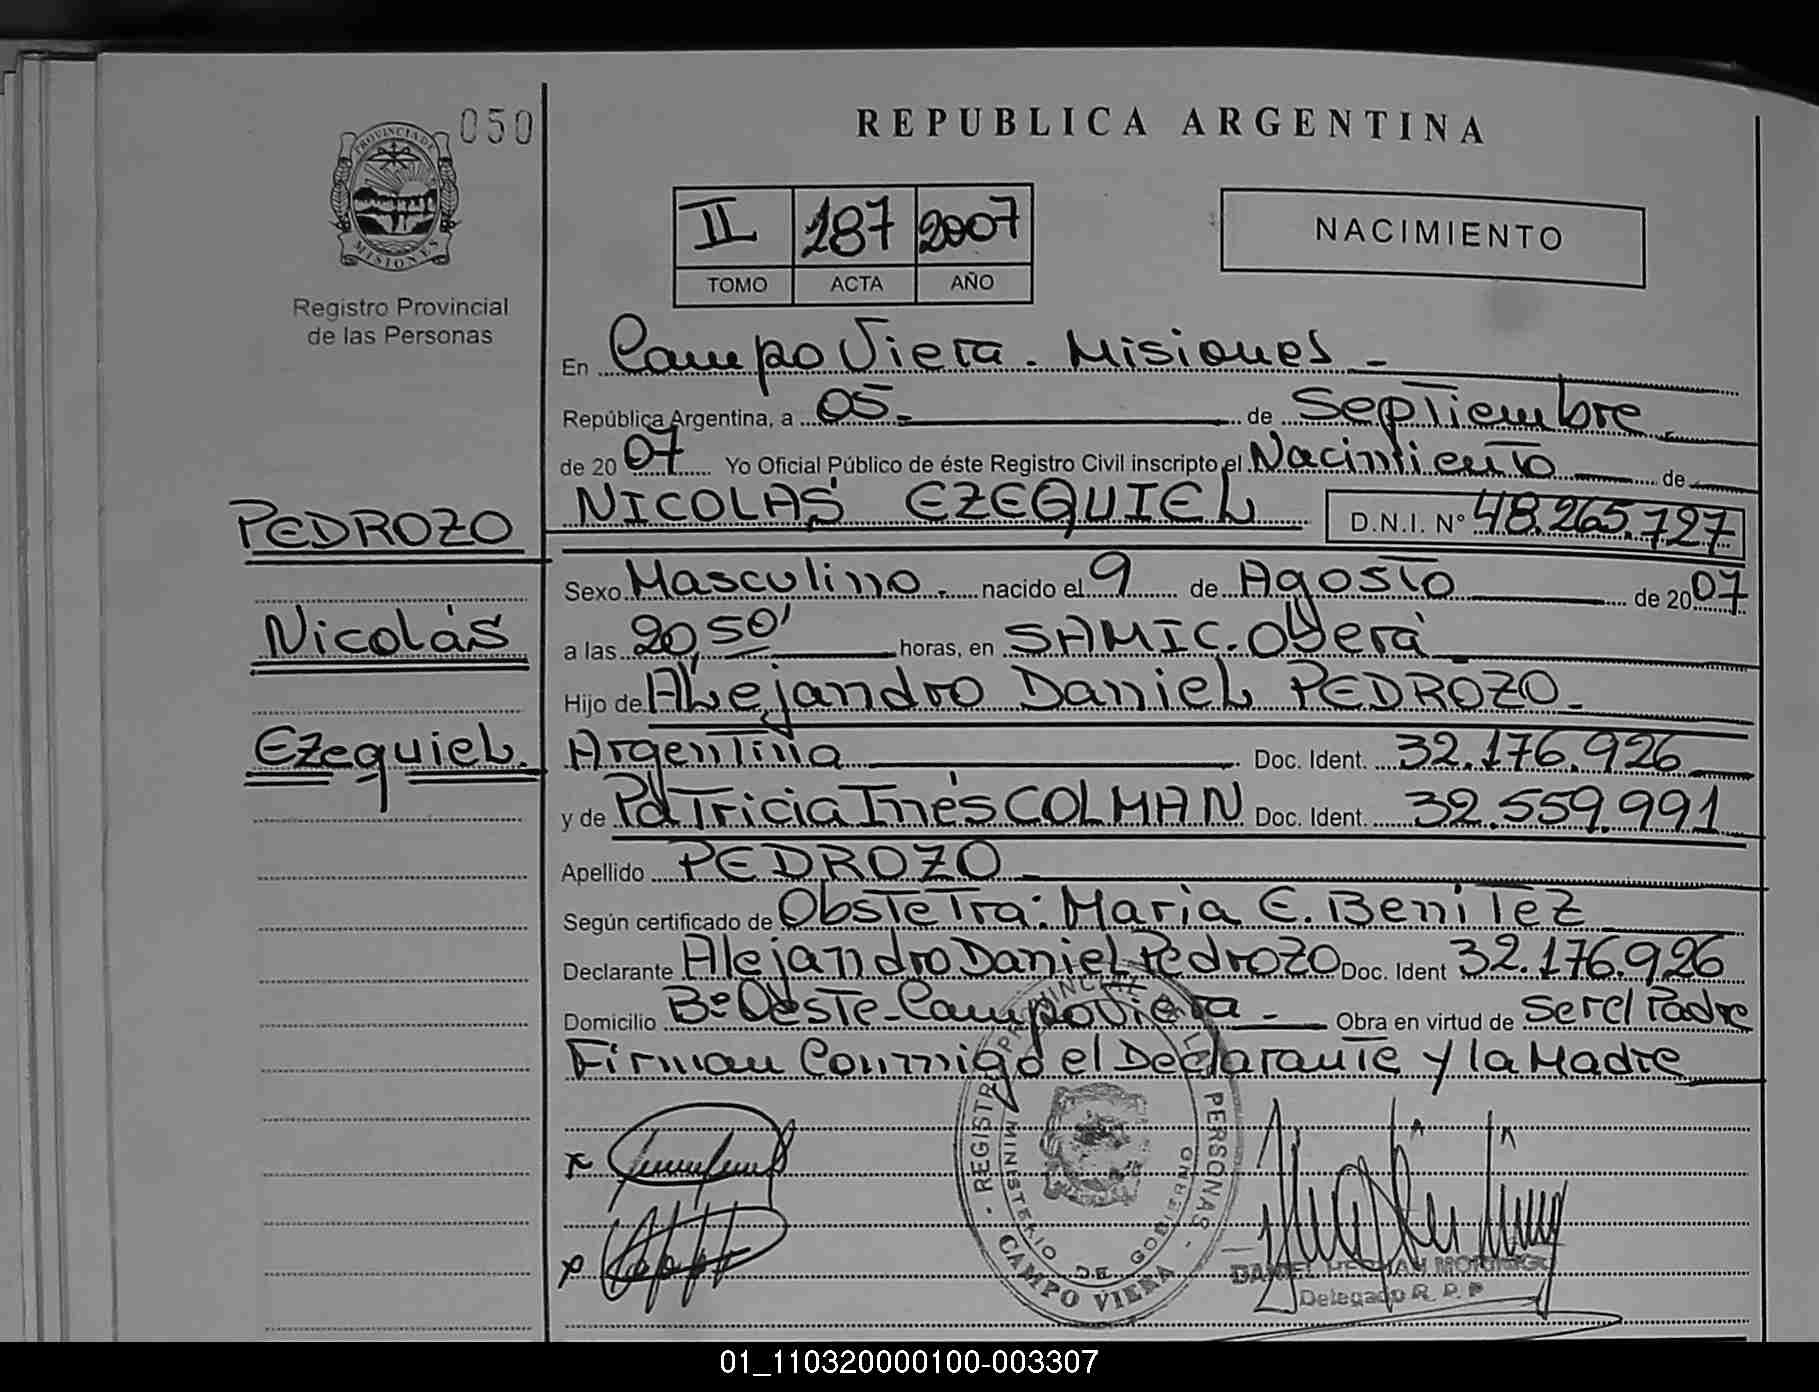 050
PROVINCIA DE
MISIONES
Registro Provincial
de las Personas
REPUBLICA ARGENTINA
II 187 2007
TOMO ACTA AÑO
NACIMIENTO
En Campo Viera - Misiones -
República Argentina, a 05 - de Septiembre
de 2007 Yo Oficial Público de éste Registro Civil inscripto el Nacimiento de
PEDROZO
Nicolás
Ezequiel.
NICOLÁS EZEQUIEL D.N.I. N° 48.265.727
Sexo Masculino. nacido el 9 de Agosto de 2007
a las 20,50' horas, en SAMIC. Oberá
Hijo de Alejandro Daniel PEDROZO -
Argentina Doc. Ident. 32.176.926
y de Patricia Inés COLMAN Doc. Ident. 32.559.991
Apellido PEDROZO -
Según certificado de Obstetra: Maria E. Benitez
Declarante Alejandro Daniel Pedrozo Doc. Ident 32.176.926
Domicilio B° Oeste - Campo Viera - Obra en virtud de Ser el Padre
Firman Conmigo el Declarante y la Madre
REGISTRO PROVINCIAL DE LAS PERSONAS
MINISTERIO DE GOBIERNO
CAMPO VIERA
DANIEL HERNAN
Delegado R. P. P
01_110320000100-003307